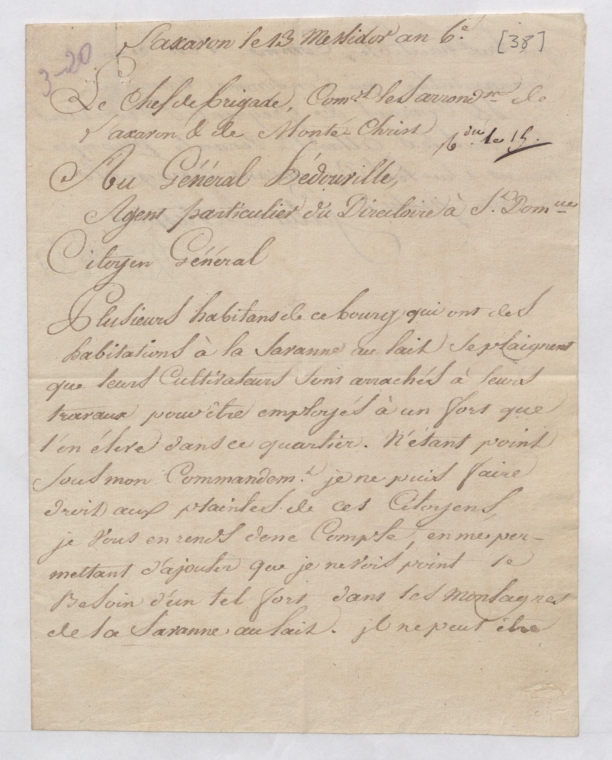 Laxavon le 13 Messidor an 6.e [38]
3-20
Le Chef de Brigade, Com.dt les arrond.nts de
Laxavon & de Monté-Christ
du 15.
Au Général hédouville,
Agent particulier du Directoire à S.t Dom.gue
Citoyen Général
Plusieurs habitans de ce bourg qui ont des
habitations à la Savanne au lait se plaignent
que leurs Cultivateurs sont arrachés à leurs
travaux pour être employés à un fort que
l'on éleve dans ce quartier. N'étant point
sous mon Commandem.t je ne puis faire
droit aux plaintes de ces Citoyens,
je vous en rends donc Compte, en me per-
mettant d'ajouter que je ne vois point le
Besoin d'un tel fort dans les Montagnes
de la Savanne au lait. jl ne peut être